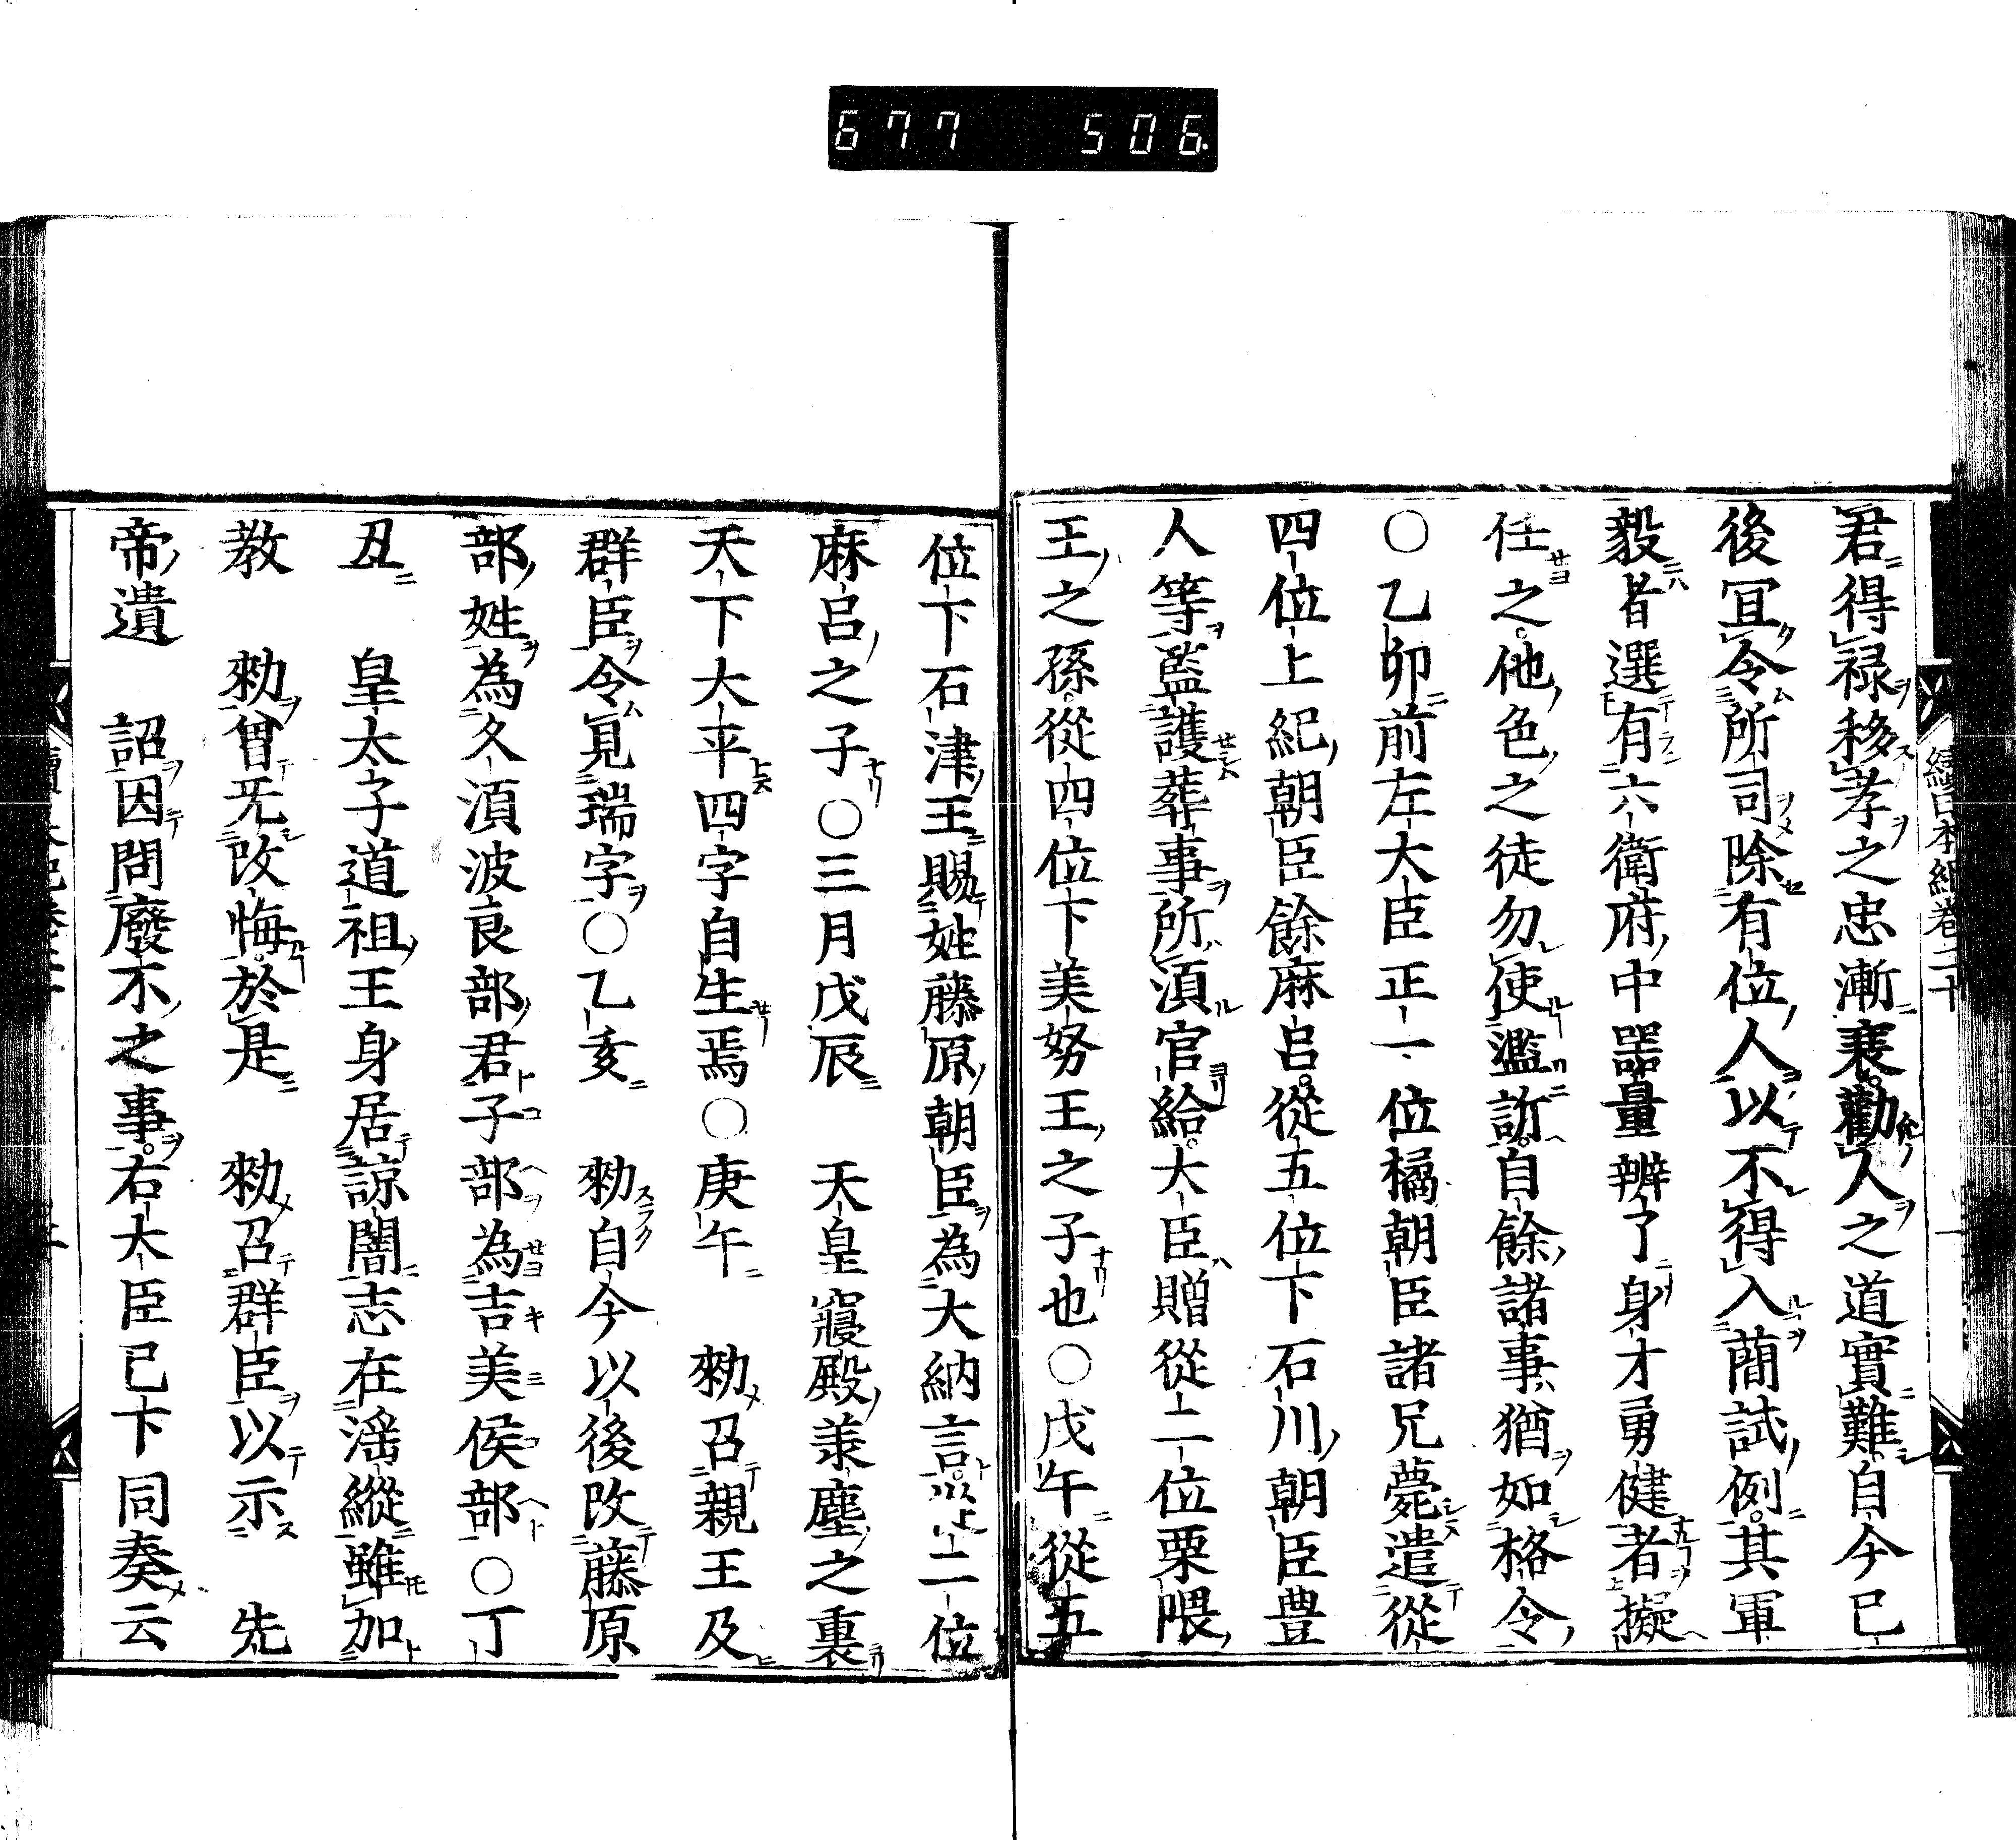 677 506
續日本紀卷二十
君得禄移孝之忠漸衰勸人之道實難自今已
後冝令所司除有位人以不得入蕳試例其軍
毅者選有六衛府中噐量辨了身才勇健者擬
任之他色之徒勿使濫訴自餘諸事猶如格令
○乙卯前左大臣正一位橘朝臣諸兄薨遣從
四位上紀朝臣餘麻呂從五位下石川朝臣豊
人等監護葬事所湏官給大臣贈從二位栗隈
王之孫從四位下美努王之子也○戊午從五
位下石津王賜姓藤原朝臣為大納言從二位
麻呂之子○三月戊辰　天皇寢殿羕塵之裏
天下大平四字自生焉○庚午　勑召親王及
群臣令見瑞字○乙亥　勑自今以後改藤原
部姓為久湏波良部君子部為吉美侯部○丁
丑　皇太子道祖王身居諒闇志在滛縱雖加
教　勑曾旡改悔於是　勑召群臣以示　先
帝遺　詔因問廢不之事右大臣已下同奏云